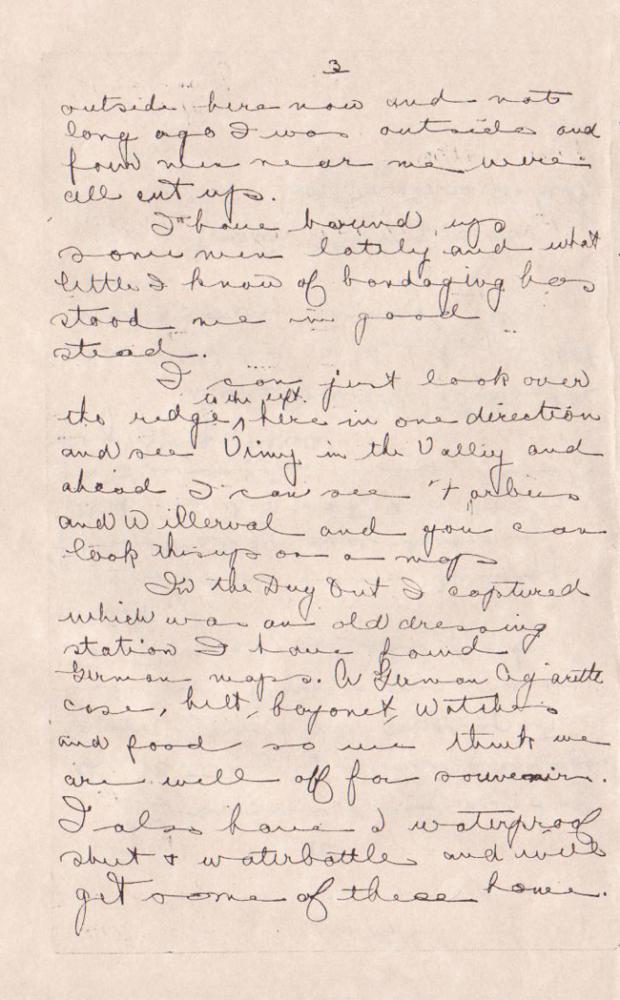 3
outside here now and not
long ago I was outside and
four men near me were
all cut up.
I have bound up
some men lately and what
little I know of bandaging has
stood me in good
stead.
I can just look over
to the left.
the ridge, here in one direction
and see Vimy in the Valley and
ahead I can see Farbus
and Willerval and you can
look this up on a map
In the Dug Out I captured
which was an old dressing
station I have found
German maps. A German Cigarette
case, belt, bayonet, watches
and food so we think we
are well off for souvenirs.
I also have a waterproof
sheet & waterbottle and will
get some of these home.